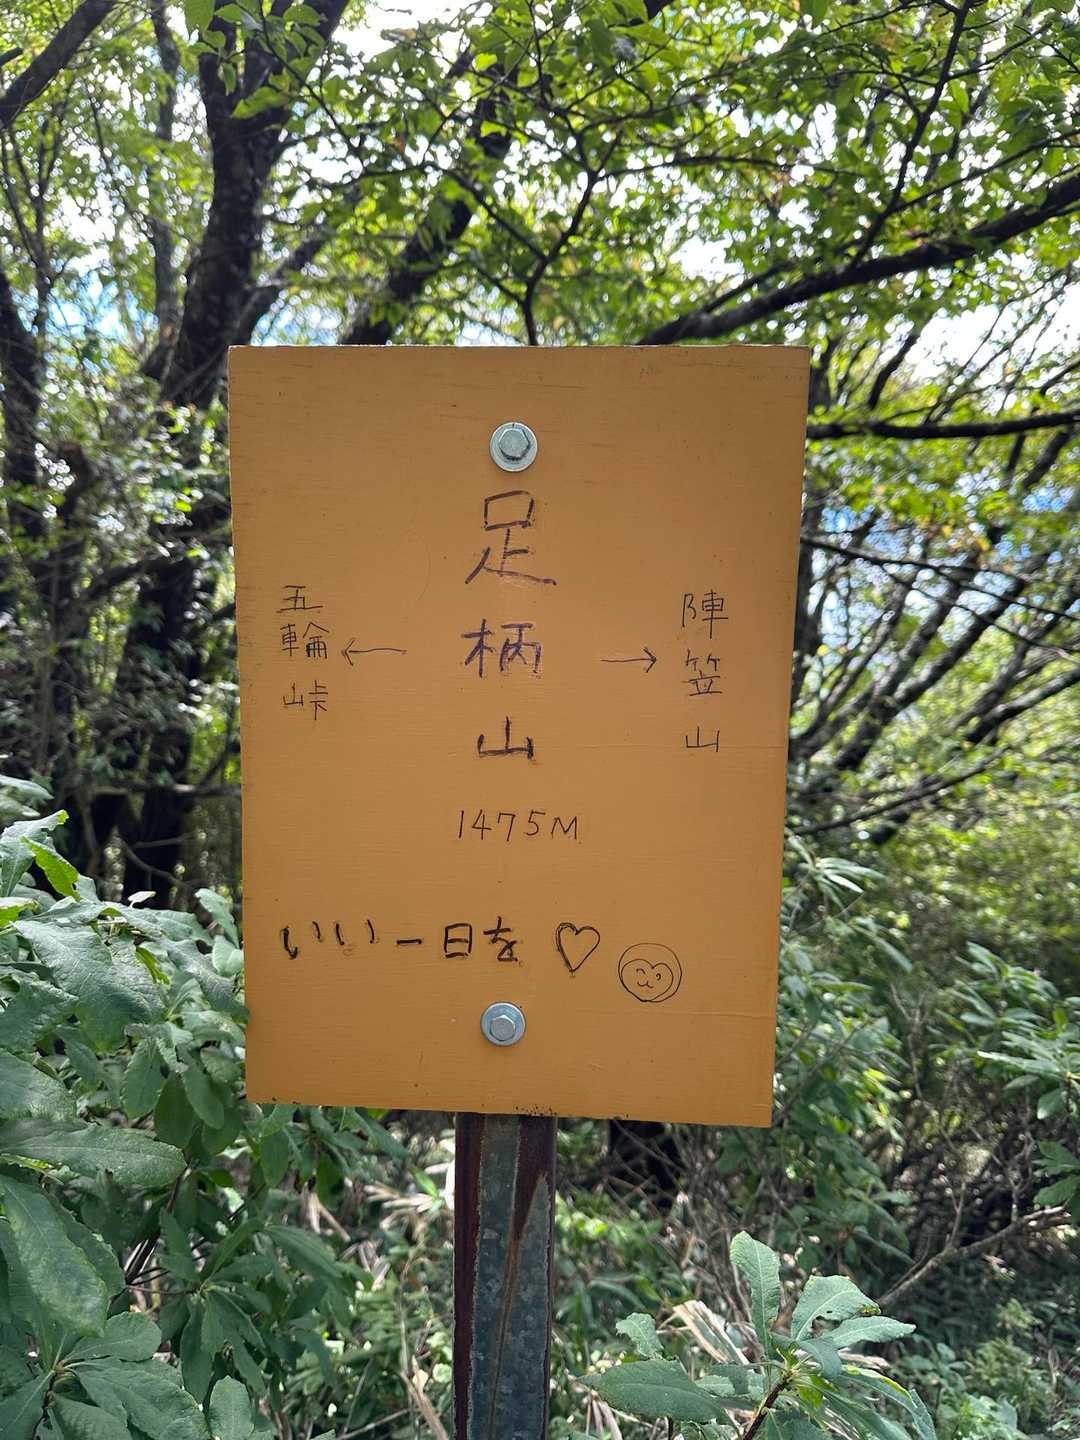 足柄山
1475M
五輪峠 ←
→ 陣笠山
いい一日を ♡